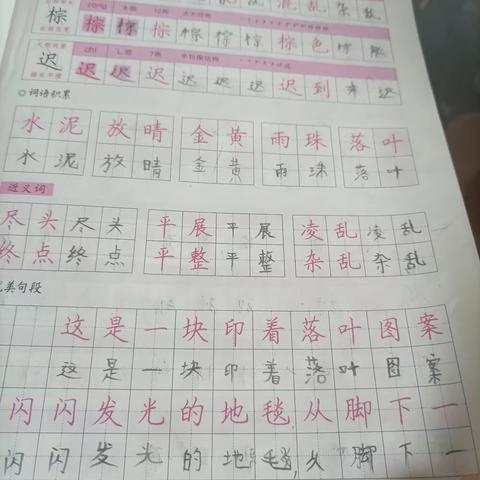 混 乱 杂 乱
棕 棕 棕 棕 棕 棕 棕 棕 色
chí
迟 迟 迟 迟 迟 迟 迟 迟 到 来 迟
词语积累
水 泥 放 晴 金 黄 雨 珠 落 叶
水 泥 放 晴 金 黄 雨 珠 落 叶
近义词
尽 头 尽 头 平 展 平 展 凌 乱 凌 乱
终 点 终 点 平 整 平 整 杂 乱 杂 乱
优美句段
这 是 一 块 印 着 落 叶 图 案
这 是 一 块 印 着 落 叶 图 案
闪 闪 发 光 的 地 毯 从 脚 下 一
闪 闪 发 光 的 地 毯, 从 脚 下 一